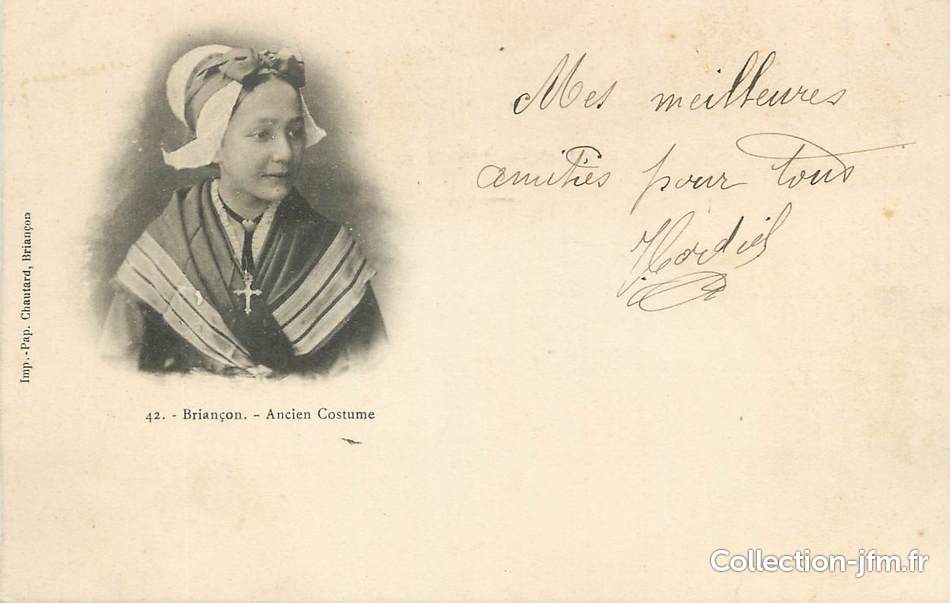 Mes meilleures
amitiés pour tous
Imp.-Pap. Chautard, Briançon
42. - Briançon. - Ancien Costume
Collection-jfm.fr